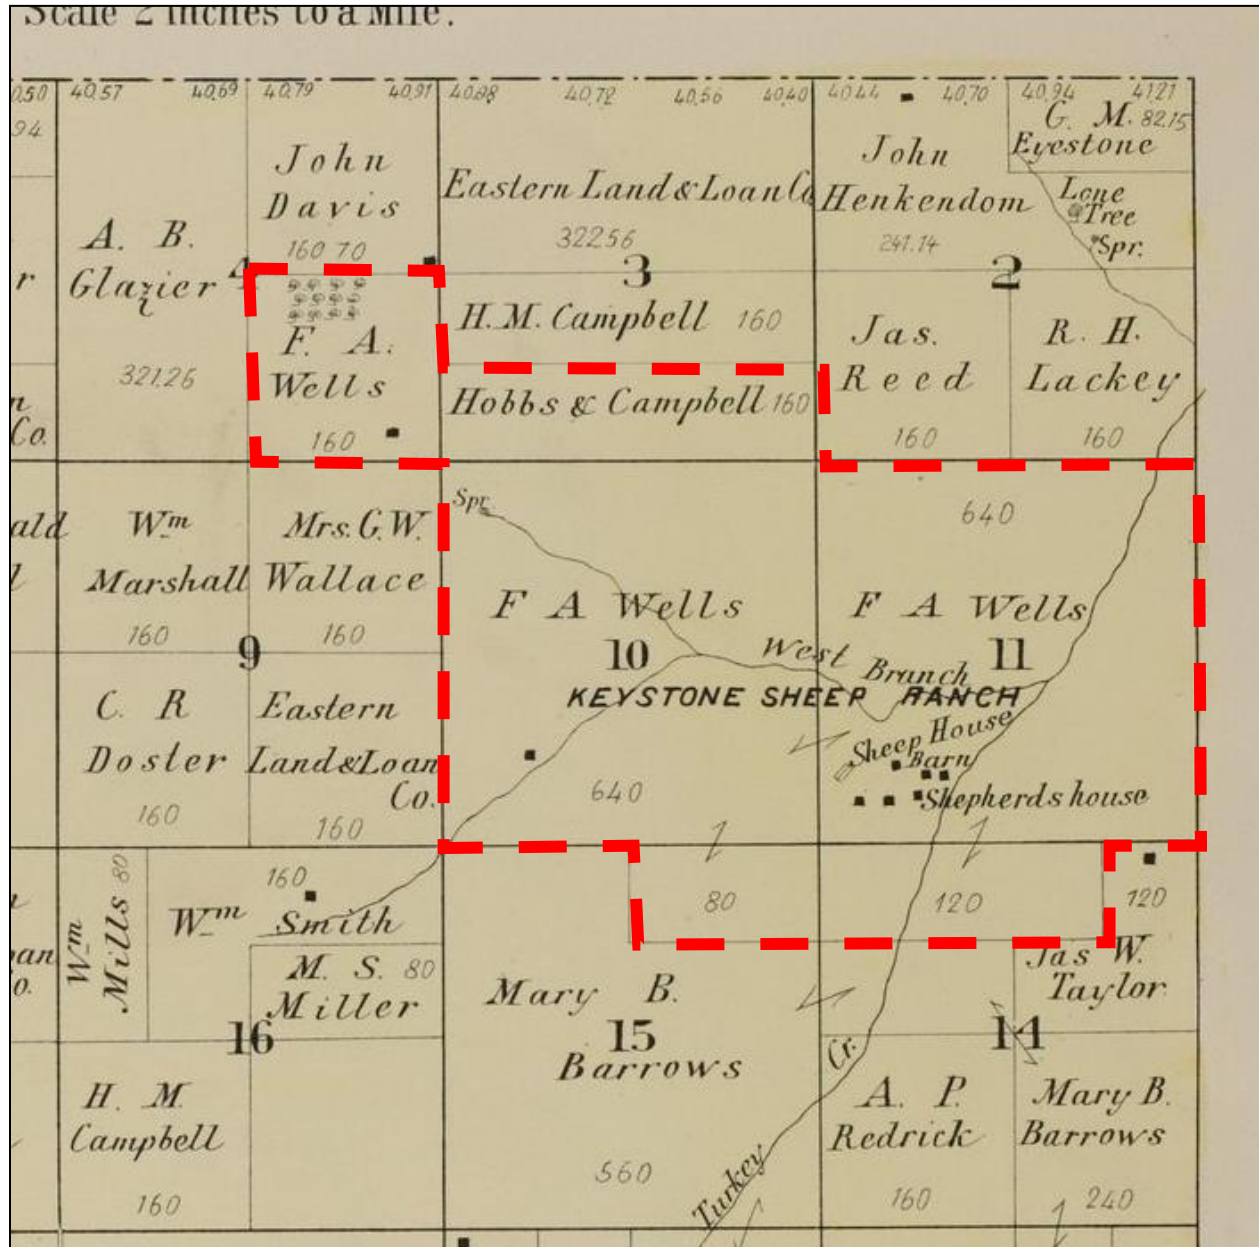 Scale 2 inches to a Mile.
40.57 40.69 40.79 40.91 40.88 40.72 40.56 40.40 40.44 40.70 40.94 41.21
94
G. M. 82.15
Eyestone
John
Davis
160 70
Eastern Land & Loan Co
322.56
3
John
Henkendom
241.14
2
Lone
Tree
Spr.
A. B.
Glazier
4
321.26
r
n
Co.
F. A.
Wells
160
H. M. Campbell 160
Hobbs & Campbell 160
Jas.
Reed
160
R. H.
Lackey
160
ald
l
Wm
Marshall
160
Mrs. G. W.
Wallace
160
9
C. R
Dosler
160
Eastern
Land & Loan
Co.
160
Spr.
F A Wells
10
640
640
F A Wells
11
West Branch
KEYSTONE SHEEP RANCH
Sheep House
Barn
Shepherds house
80
120
120
Wm
Mills 80
an
o.
160
Wm Smith
M. S. 80
Miller
16
H. M
Campbell
160
Mary B.
15
Barrows
560
Jas W.
Taylor
14
A. P.
Redrick
160
Mary B.
Barrows
240
Turkey Cr.